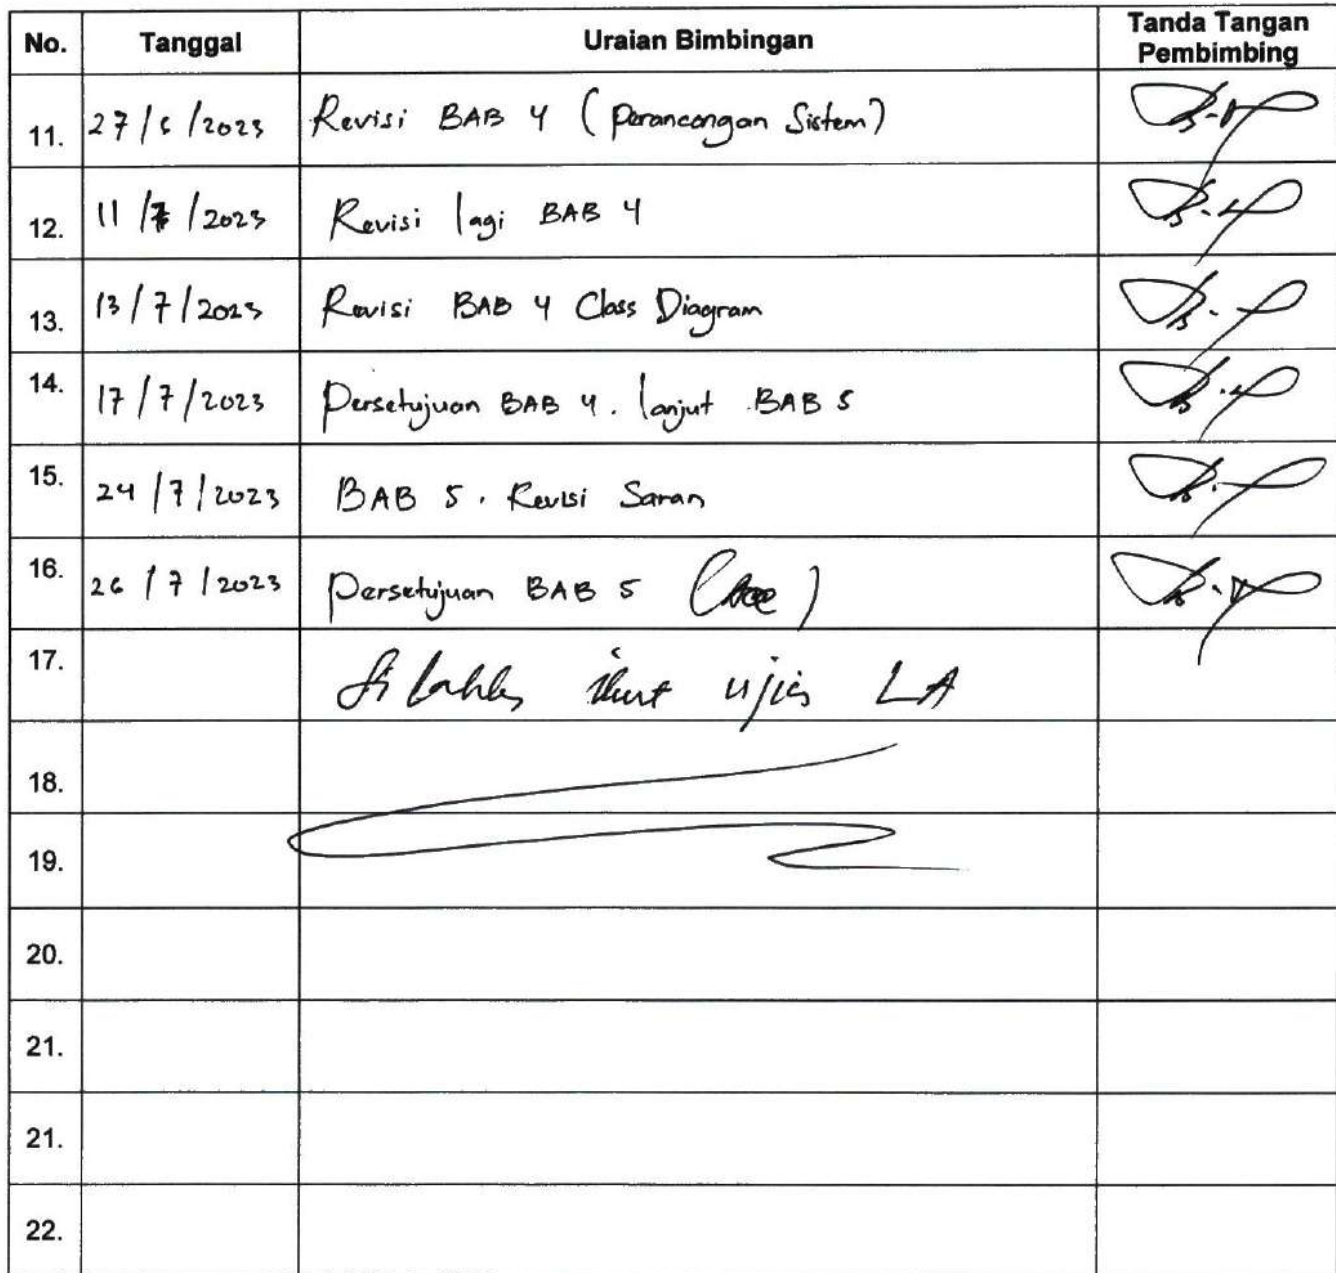 No. Tanggal Uraian Bimbingan Tanda Tangan Pembimbing
11. 27/6/2023 Revisi BAB 4 (Perancangan Sistem)
12. 11/7/2023 Revisi lagi BAB 4
13. 13/7/2023 Revisi BAB 4 Class Diagram
14. 17/7/2023 Persetujuan BAB 4. lanjut BAB 5
15. 24/7/2023 BAB 5. Revisi Saran
16. 26/7/2023 Persetujuan BAB 5
17. ikut ujian LA
18.
19.
20.
21.
21.
22.